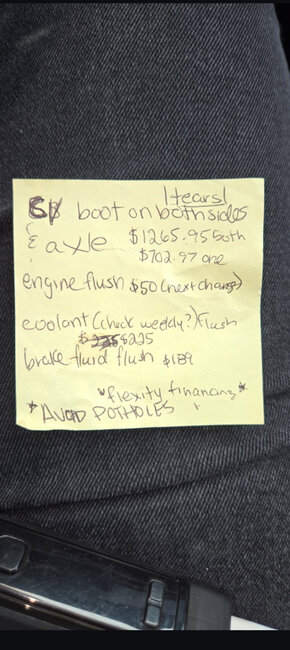 |tears|
CV boot on both sides
& axle $1265.95 both
$702.97 one
engine flush $50 (next change)
coolant (check weekly?) flush
$225
brake fluid flush $189
*flexity financing*
*AVOID POTHOLES